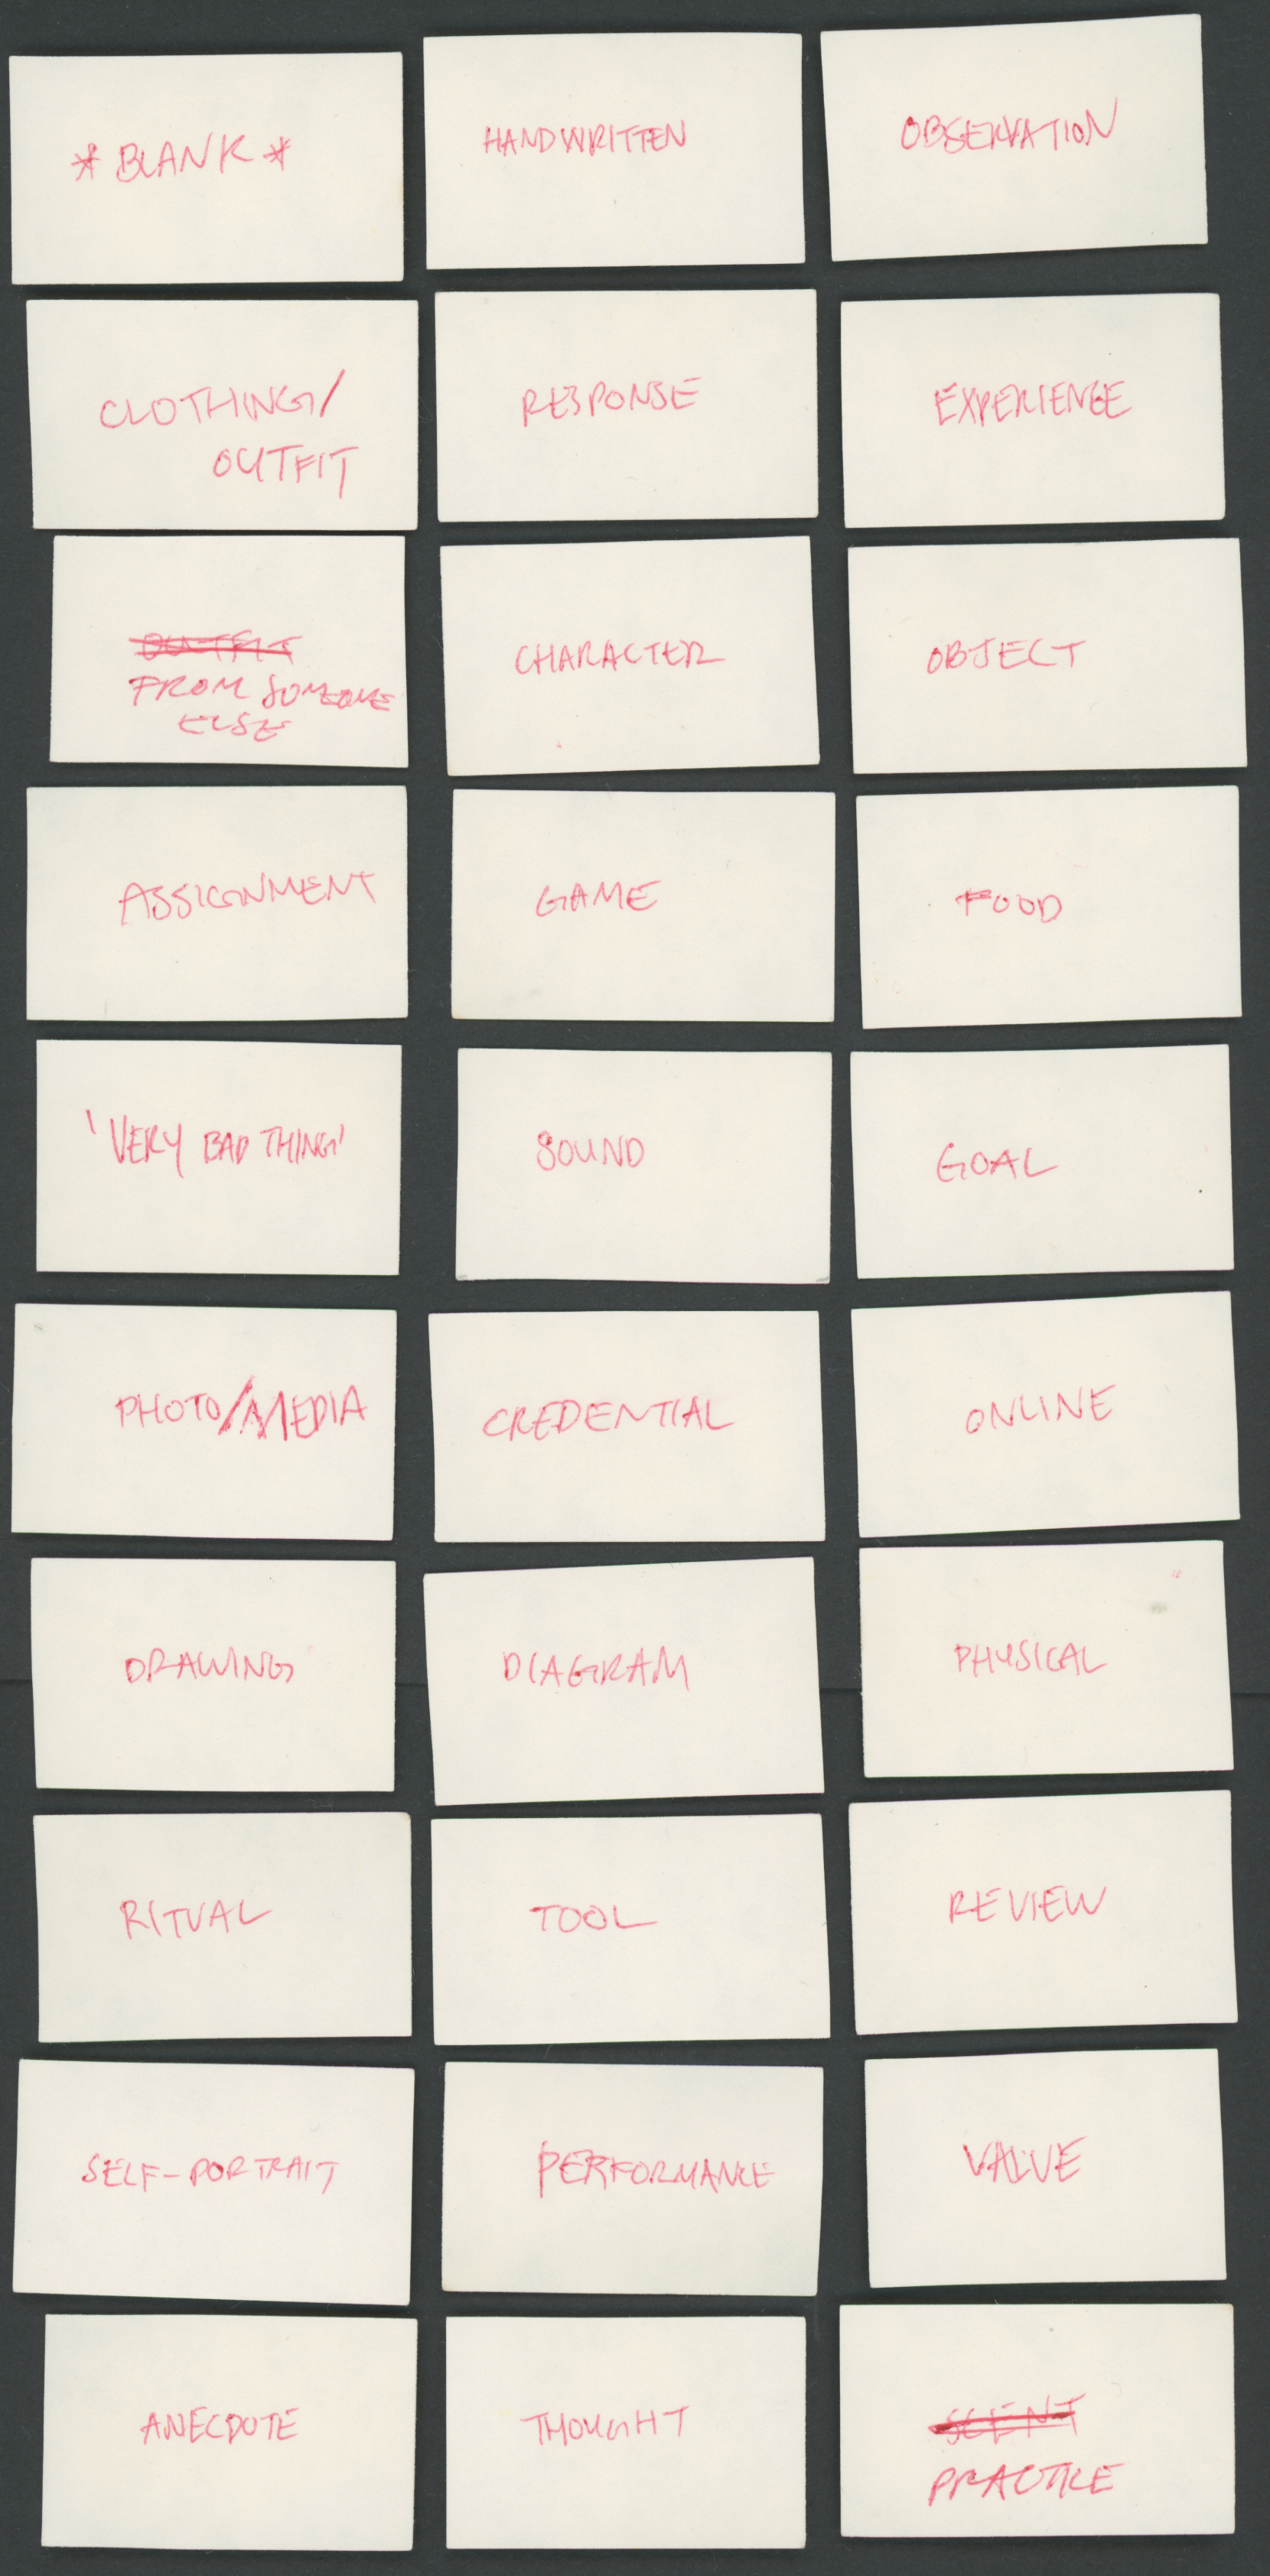 *BLANK*
HANDWRITTEN
OBSERVATION
CLOTHING/
OUTFIT
RESPONSE
EXPERIENCE
OUTFIT
FROM SOMEONE
ELSE
CHARACTER
OBJECT
ASSIGNMENT
GAME
FOOD
'VERY BAD THING'
SOUND
GOAL
PHOTO/MEDIA
CREDENTIAL
ONLINE
DRAWING
DIAGRAM
PHYSICAL
RITUAL
TOOL
REVIEW
SELF-PORTRAIT
PERFORMANCE
VALUE
ANECDOTE
THOUGHT
SCENT
PRACTICE